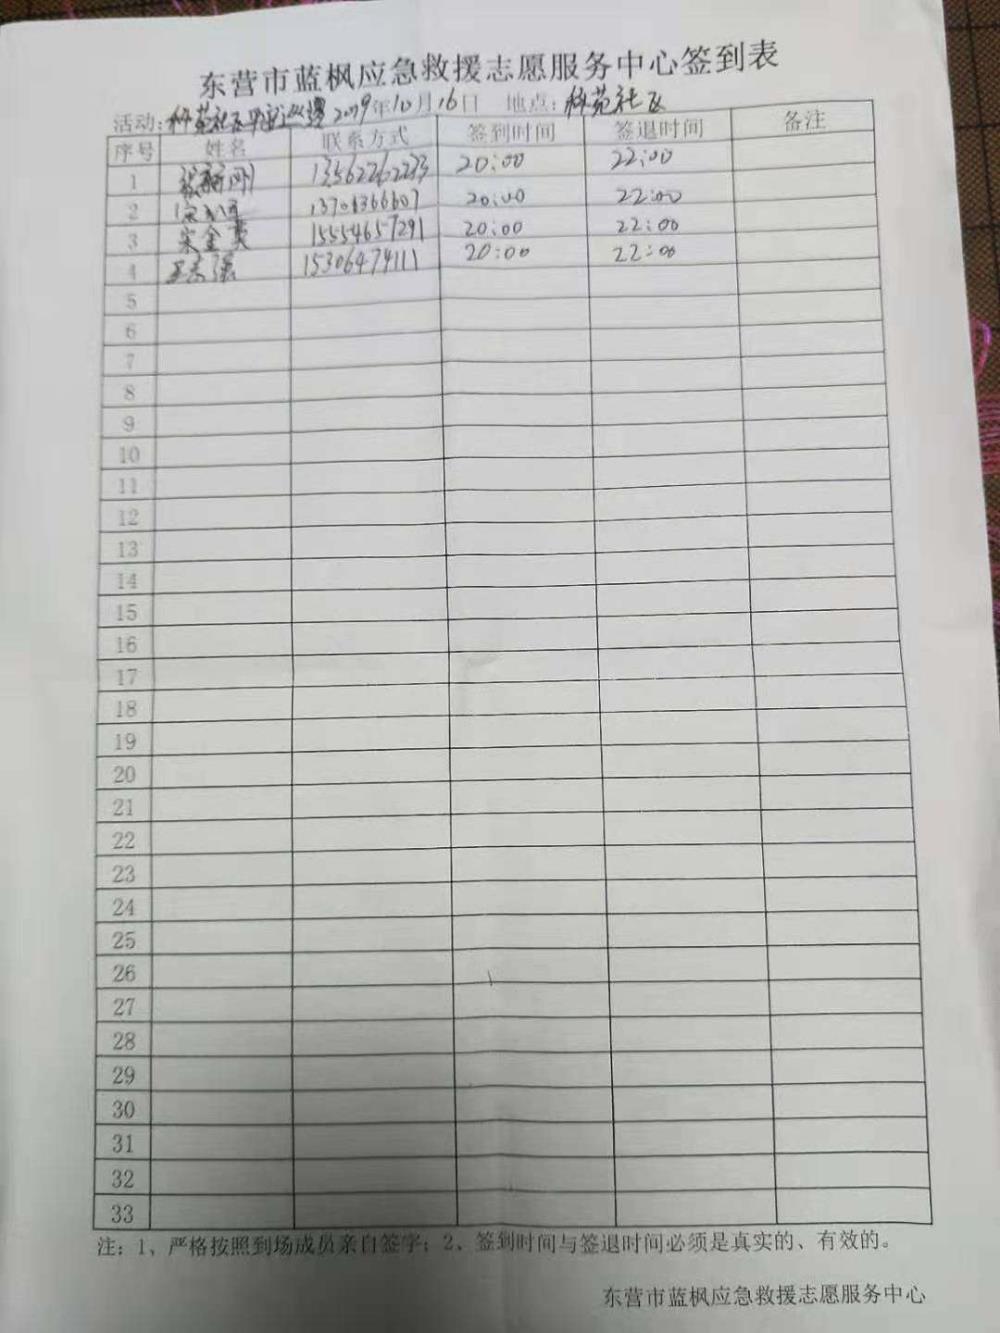 东营市蓝枫应急救援志愿服务中心签到表
活动:科苑社区平安巡逻 2019年10月16日 地点:科苑社区
序号 姓名 联系方式 签到时间 签退时间 备注
1 20:00 22:00
2 20:00 22:00
3 宋金英 15554657291 20:00 22:00
4 15306474111 20:00 22:00
5
6
7
8
9
10
11
12
13
14
15
16
17
18
19
20
21
22
23
24
25
26
27
28
29
30
31
32
33
注:1、严格按照到场成员亲自签字;2、签到时间与签退时间必须是真实的、有效的。
东营市蓝枫应急救援志愿服务中心